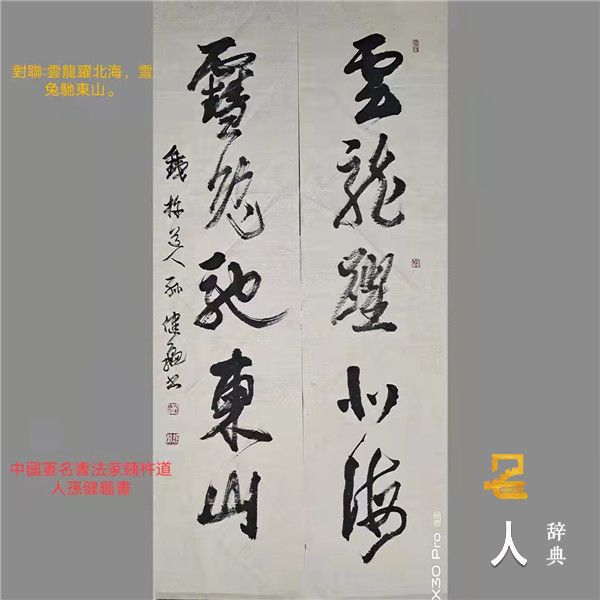 對聯:雲龍躍北海，雪
兔馳東山。
雲龍躍北海
雪兔馳東山
銕杵道人孫健書
中國著名書法家銕杵道
人孫健書
X30 Pro
名人
辞典